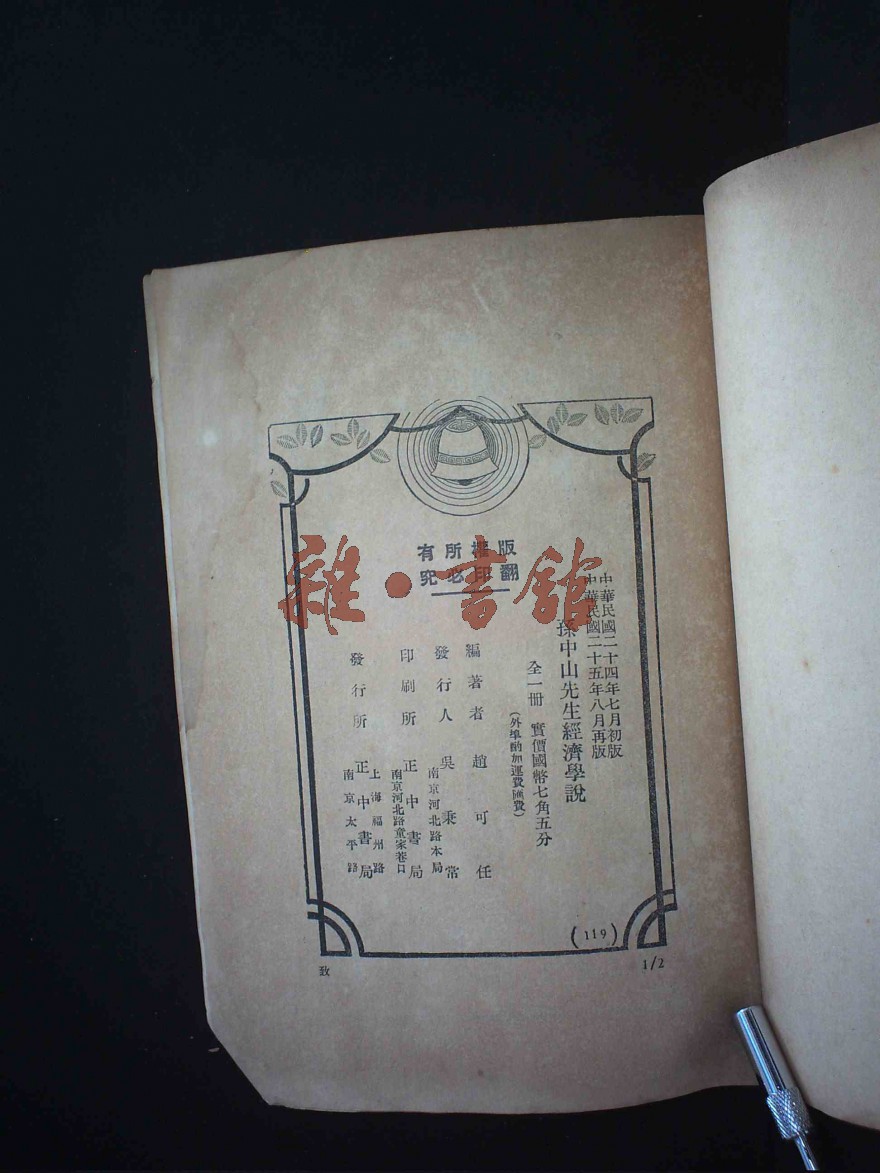 版權所有
翻印必究
中華民國二十四年七月初版
中華民國二十五年八月再版
孫中山先生經濟學說
全一冊 實價國幣七角五分
(外埠酌加運費匯費)
編著者 趙可任
發行人 吳秉常
南京河北路本局
印刷所 正中書局
南京河北路童家巷口
發行所 正中書局
上海福州路
南京太平路
(119)
致
1/2
雜·書館